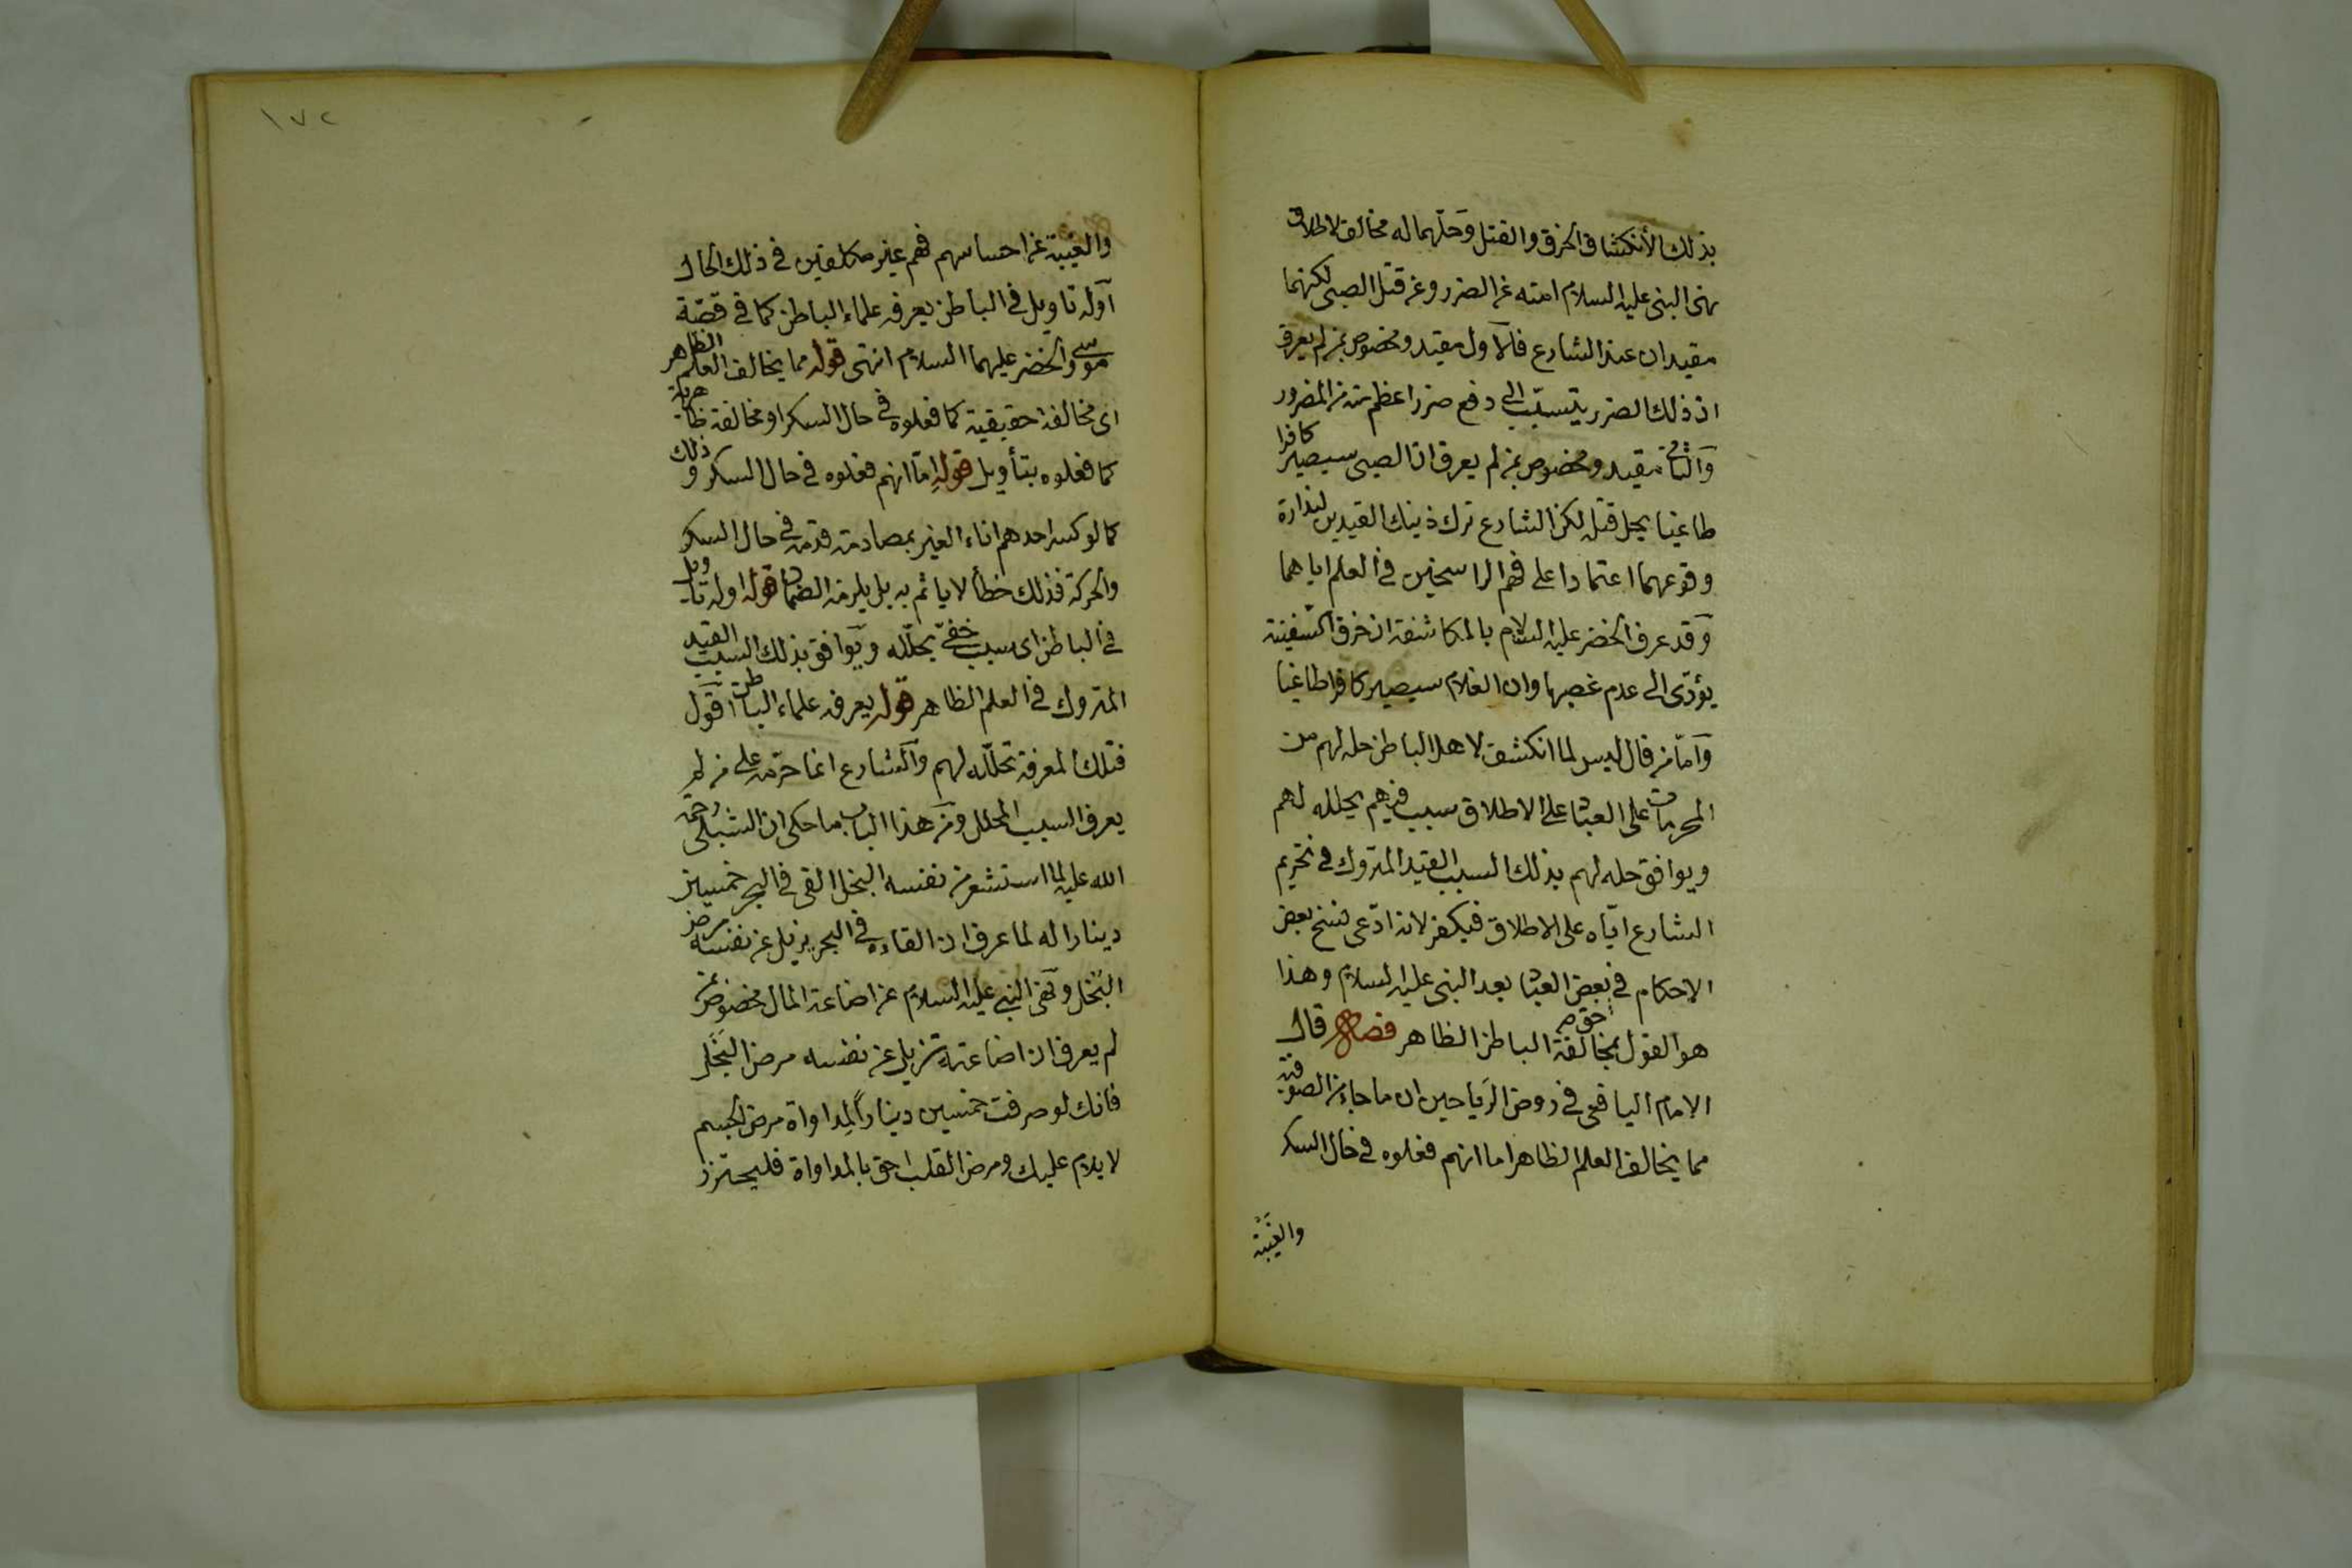 بذلك الأنكشاف الخرق والقتل وحلهما له مخالف لاطلاق
نهى النبى عليه السلام امته عن الضرر وعن قتل الصبى لكنهما
مقيدان عند الشارع فالاول مقيد ومخصوص بمن لم يعرف
ان ذلك الضرر يتسبب الى دفع ضرر اعظم منه من المضرور
والثانى مقيد ومخصوص بمن لم يعرف ان الصبى سيصير كافرا
طاغيا يحل قتله لكن الشارع ترك ذينك القيدين لندارة
وقوعهما اعتمادا على فهم الراسخين فى العلم اياهما
وقد عرف الخضر عليه السلام بالمكاشفة ان خرق السفينة
يؤدى الى عدم غصبها وان الغلام سيصير كافرا طاغيا
واما من قال ليس لما انكشف لاهل الباطن حله لهم من
المحرمات على العباد على الاطلاق سبب فيهم يحلله لهم
ويوافق حله لهم بذلك السبب القيد المتروك فى تحريم
الشارع اياه على الاطلاق فيكفر لانه ادعى نسخ بعض
الاحكام فى بعض العباد بعد النبى عليه السلام وهذا
هو القول بمخالفة الباطن الظاهر فصل قال
الامام اليافعى فى روض الرياحين ان ما جاء من الصوفية
مما يخالف العلم الظاهر اما انهم فعلوه فى حال السكر
والغيبة
١٧٢
والغيبة عن احساسهم فهم غير مكلفين فى ذلك الحال
او له تاويل فى الباطن يعرفه علماء الباطن كما فى قصة
موسى والخضر عليهما السلام انتهى قوله مما يخالف العلم الظاهر
اى مخالفة حقيقية كما فعلوه فى حال السكر او مخالفة ظاهرية
كما فعلوه بتأويل قوله اما انهم فعلوه فى حال السكر وذلك
كما لو كسر احدهم اناء الغير بمصادمة قدمه فى حال السكر
والحركة فذلك خطأ لا ياثم به بل يلزمه الضمان قوله او له تاويل
فى الباطن اى سبب خفى يحلله ويوافق بذلك السبب القيد
المتروك فى العلم الظاهر قوله يعرفه علماء الباطن اقول
فتلك المعرفة تحلله لهم والشارع انما حرمه على من لم
يعرف السبب المحلل ومن هذا الباب ما حكى ان الشبلى رحمة
الله عليه لما استشعر من نفسه البخل القى فى البحر خمسين
دينارا له لما عرف ان القاءه فى البحر يزيل عن نفسه مرض
البخل ونهى النبى عليه السلام عن اضاعة المال مخصوص بمن
لم يعرف ان اضاعته تزيل عن نفسه مرض البخل
فانك لو صرفت خمسين دينارا لمداواة مرض الجسم
لا يلام عليك ومرض القلب احق بالمداواة فليحترز